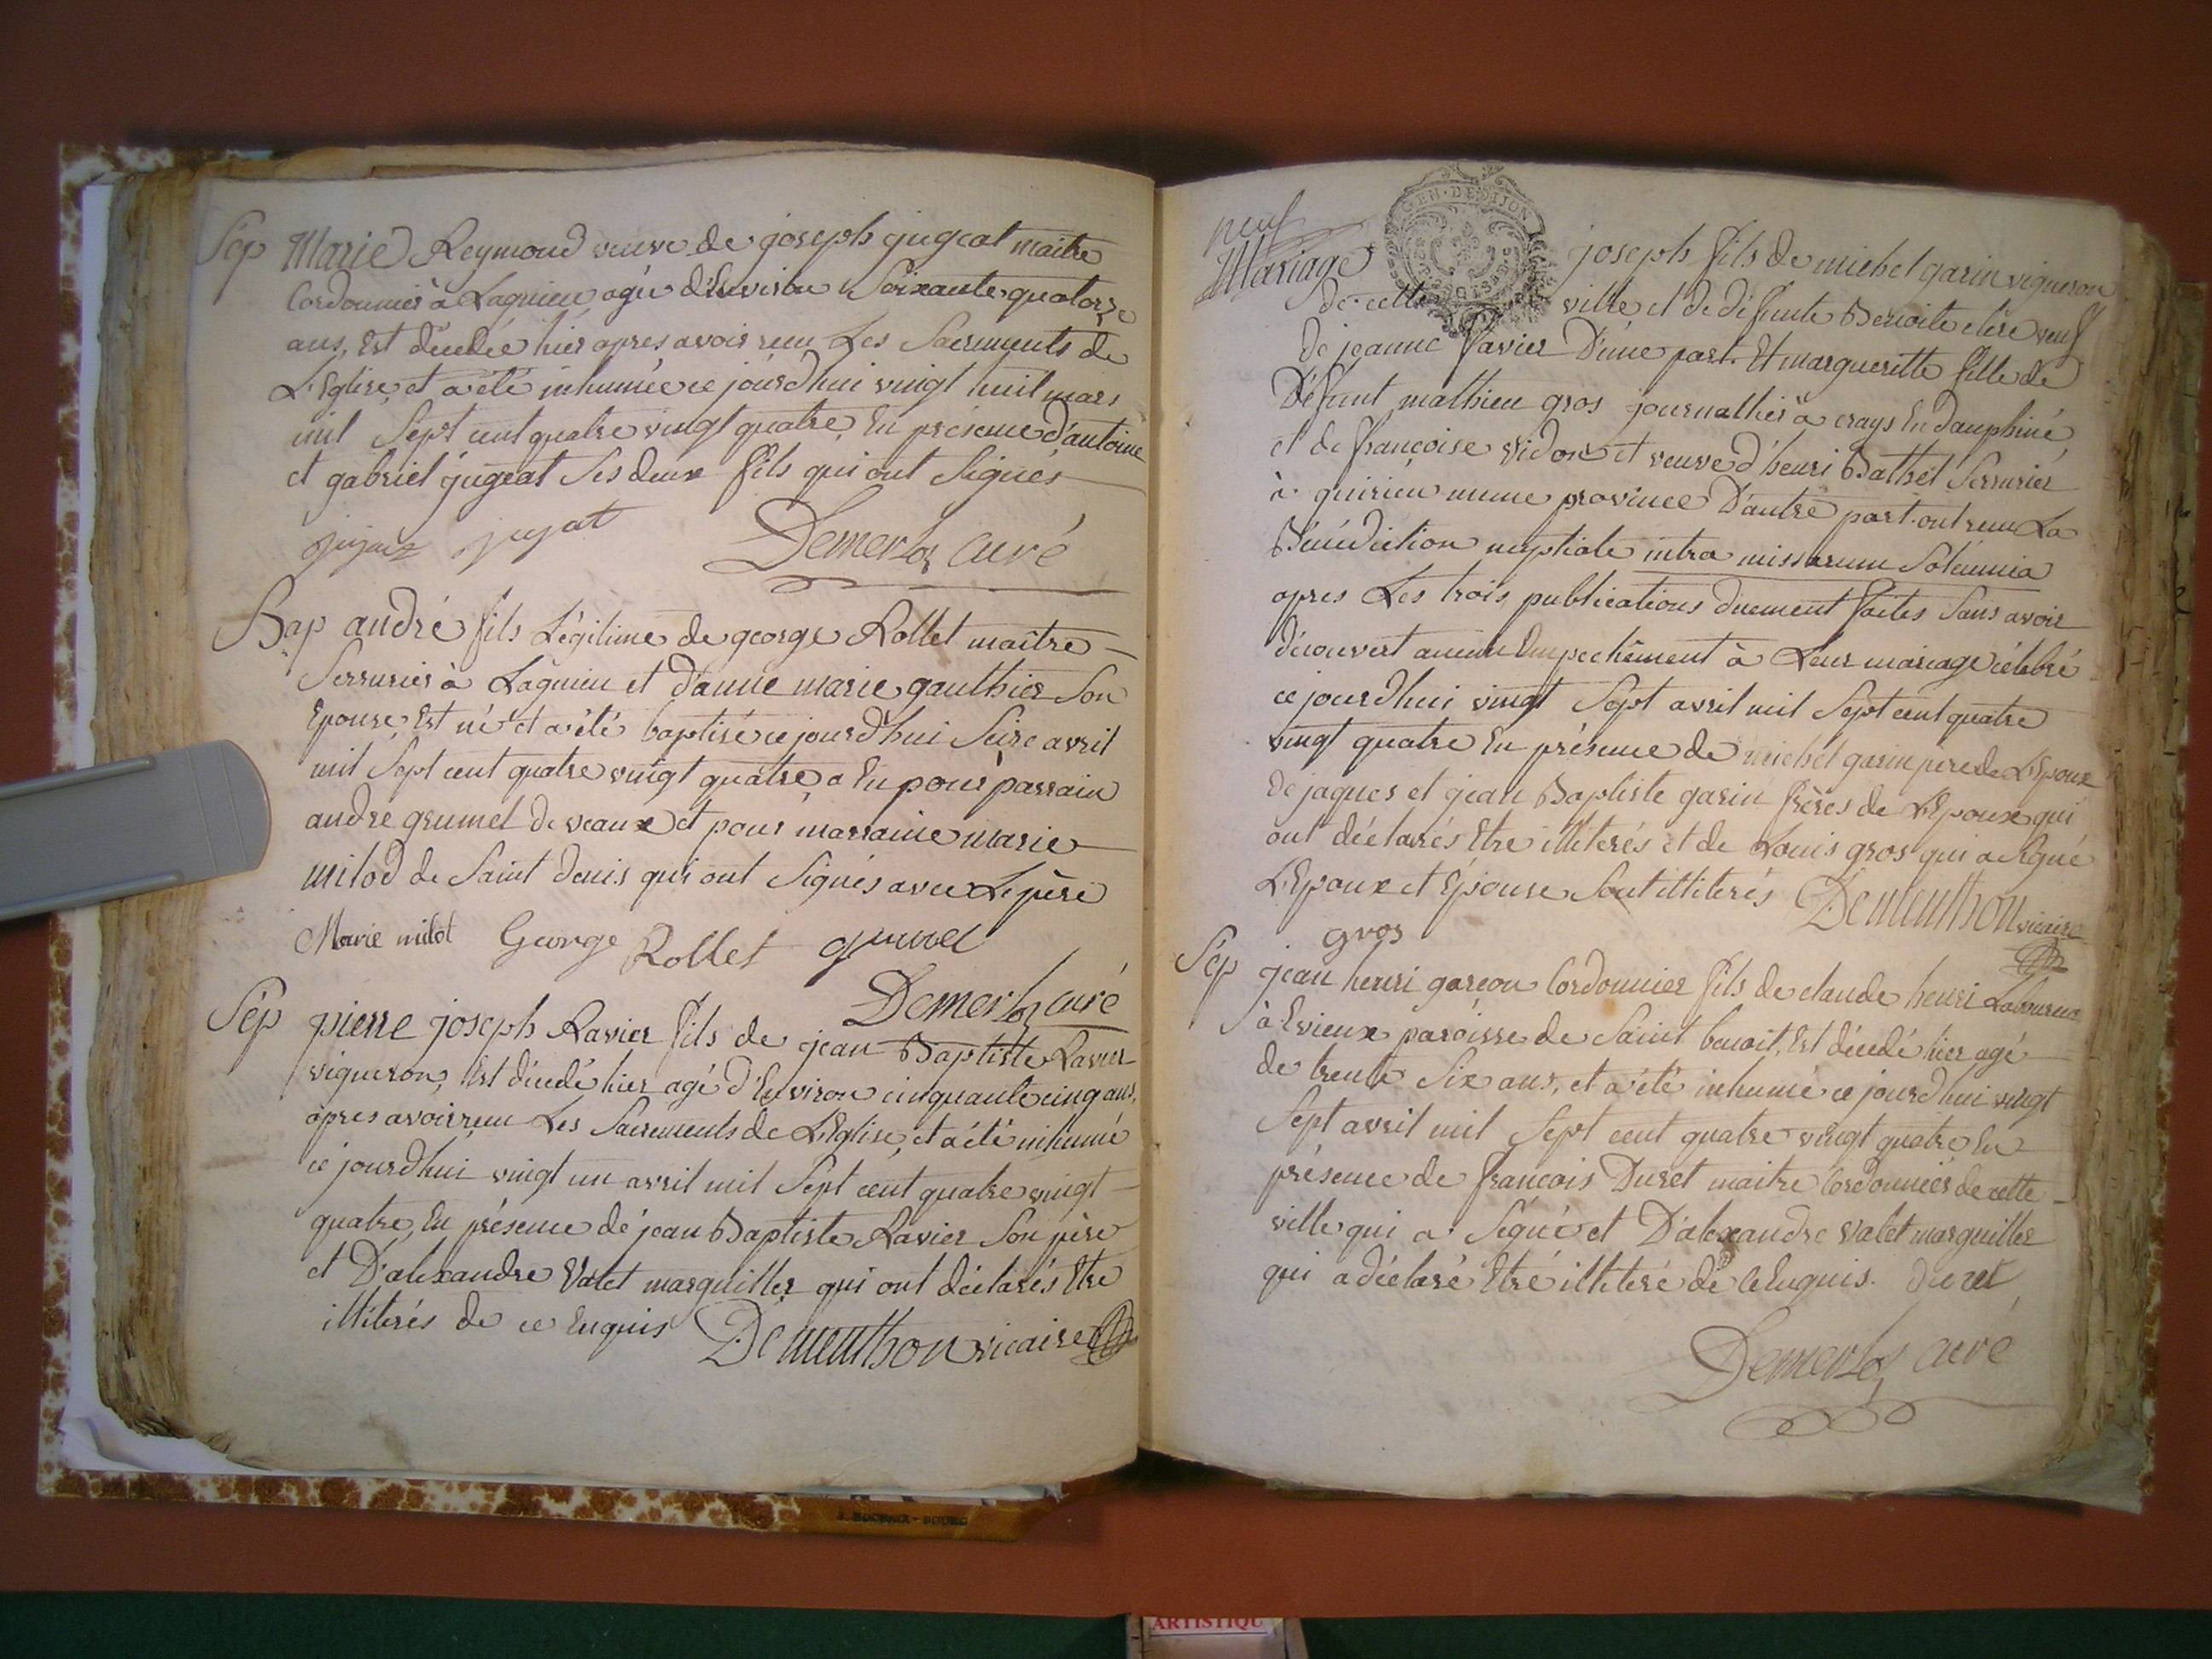 Sép Marie Reymond veuve de joseph jugeat maitre
Cordonnier à Lagnieu agée d'Environ Soixante quatorze
ans, Est décédée hier apres avoir recu Les Sacrements de
L'Eglise, et a été inhumée ce jourd'hui vingt huit mars
mil Sept cent quatre vingt quatre, En présence d'antoine
et gabriel jugeat Ses deux fils qui ont Signés
jujat
Demerloz curé
Bap andré fils Légitime de george Rollet maître
Serrurier à Lagnieu et d'anne marie gauthier Son
Epouse, Est né et a été baptisé ce jourd'hui Seize avril
mil Sept cent quatre vingt quatre, a Eu pour parrain
andré grumel de veaux et pour marraine marie
milod de Saint denis qui ont Signés avec Le père
Marie milot George Rollet grumel
Demerloz curé
Sép pierre joseph Ravier fils de jean Baptiste Ravier
vigneron, Est décédé hier agé d'Environ cinquante cinq ans,
apres avoir recu Les Sacrements de L'Eglise, et a été inhumé
ce jourd'hui vingt un avril mil Sept cent quatre vingt
quatre, En présence de jean Baptiste Ravier Son père
et D'alexandre Valet marguiller qui ont déclarés Etre
illiterés de ce Enquis Dementhon vicaire
neuf
GEN. DE DIJON
Mariage joseph fils de michel garin vigneron
de cette ville et de défunte Benoite clere veuf
de jeanne Ravier D'une part. Et margueritte fille de
Défunt mathieu gros journallier à crays En dauphiné,
et de françoise vidon et veuve d'henri Bathet Serrurier
à quirieu meme province D'autre part. ont recu La
Bénédiction nuptiale intra missarum Solemnia
apres Les trois publications duement faites Sans avoir
découvert aucun Empechêment à Leur mariage célébré
ce jourd'hui vingt Sept avril mil Sept cent quatre
vingt quatre En présence de michel garin père de L'Epoux
de jaques et jean Baptiste garin frères de L'Epoux qui
ont déclarés Etre illiterés et de Louis gros qui a Signé
L'Epoux et Epouse Sont illiterés Dementhon vicaire
gros
Sép jean henri garçon Cordonnier fils de claude henri
à Evieux paroisse de Saint benoit, Est décédé hier agé
de trente Six ans, et a été inhumé ce jourd'hui vingt
Sept avril mil Sept cent quatre vingt quatre En
présence de françois Duret maitre Cordonnier de cette
ville qui a Signé et D'alexandre valet marguiller
qui a déclaré Etre illiteré de ce Enquis. Duret
Demerloz curé
ARTISTIQU